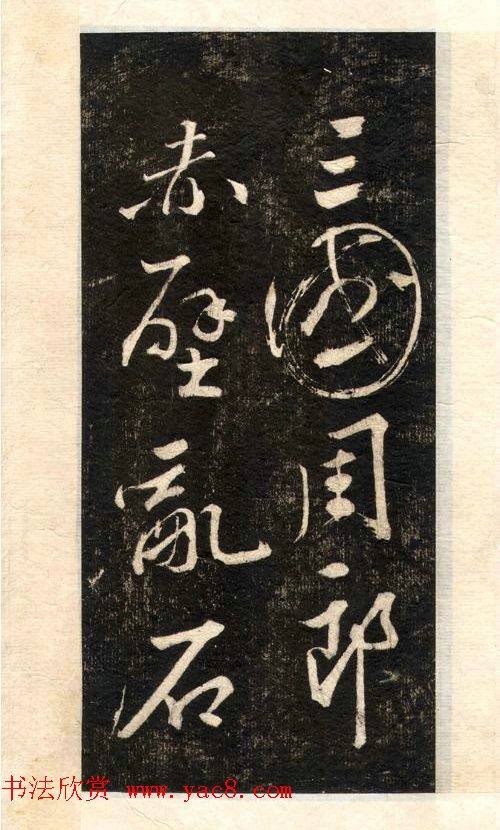 三國周郎
赤壁亂石
书法欣赏 www.yac8.com